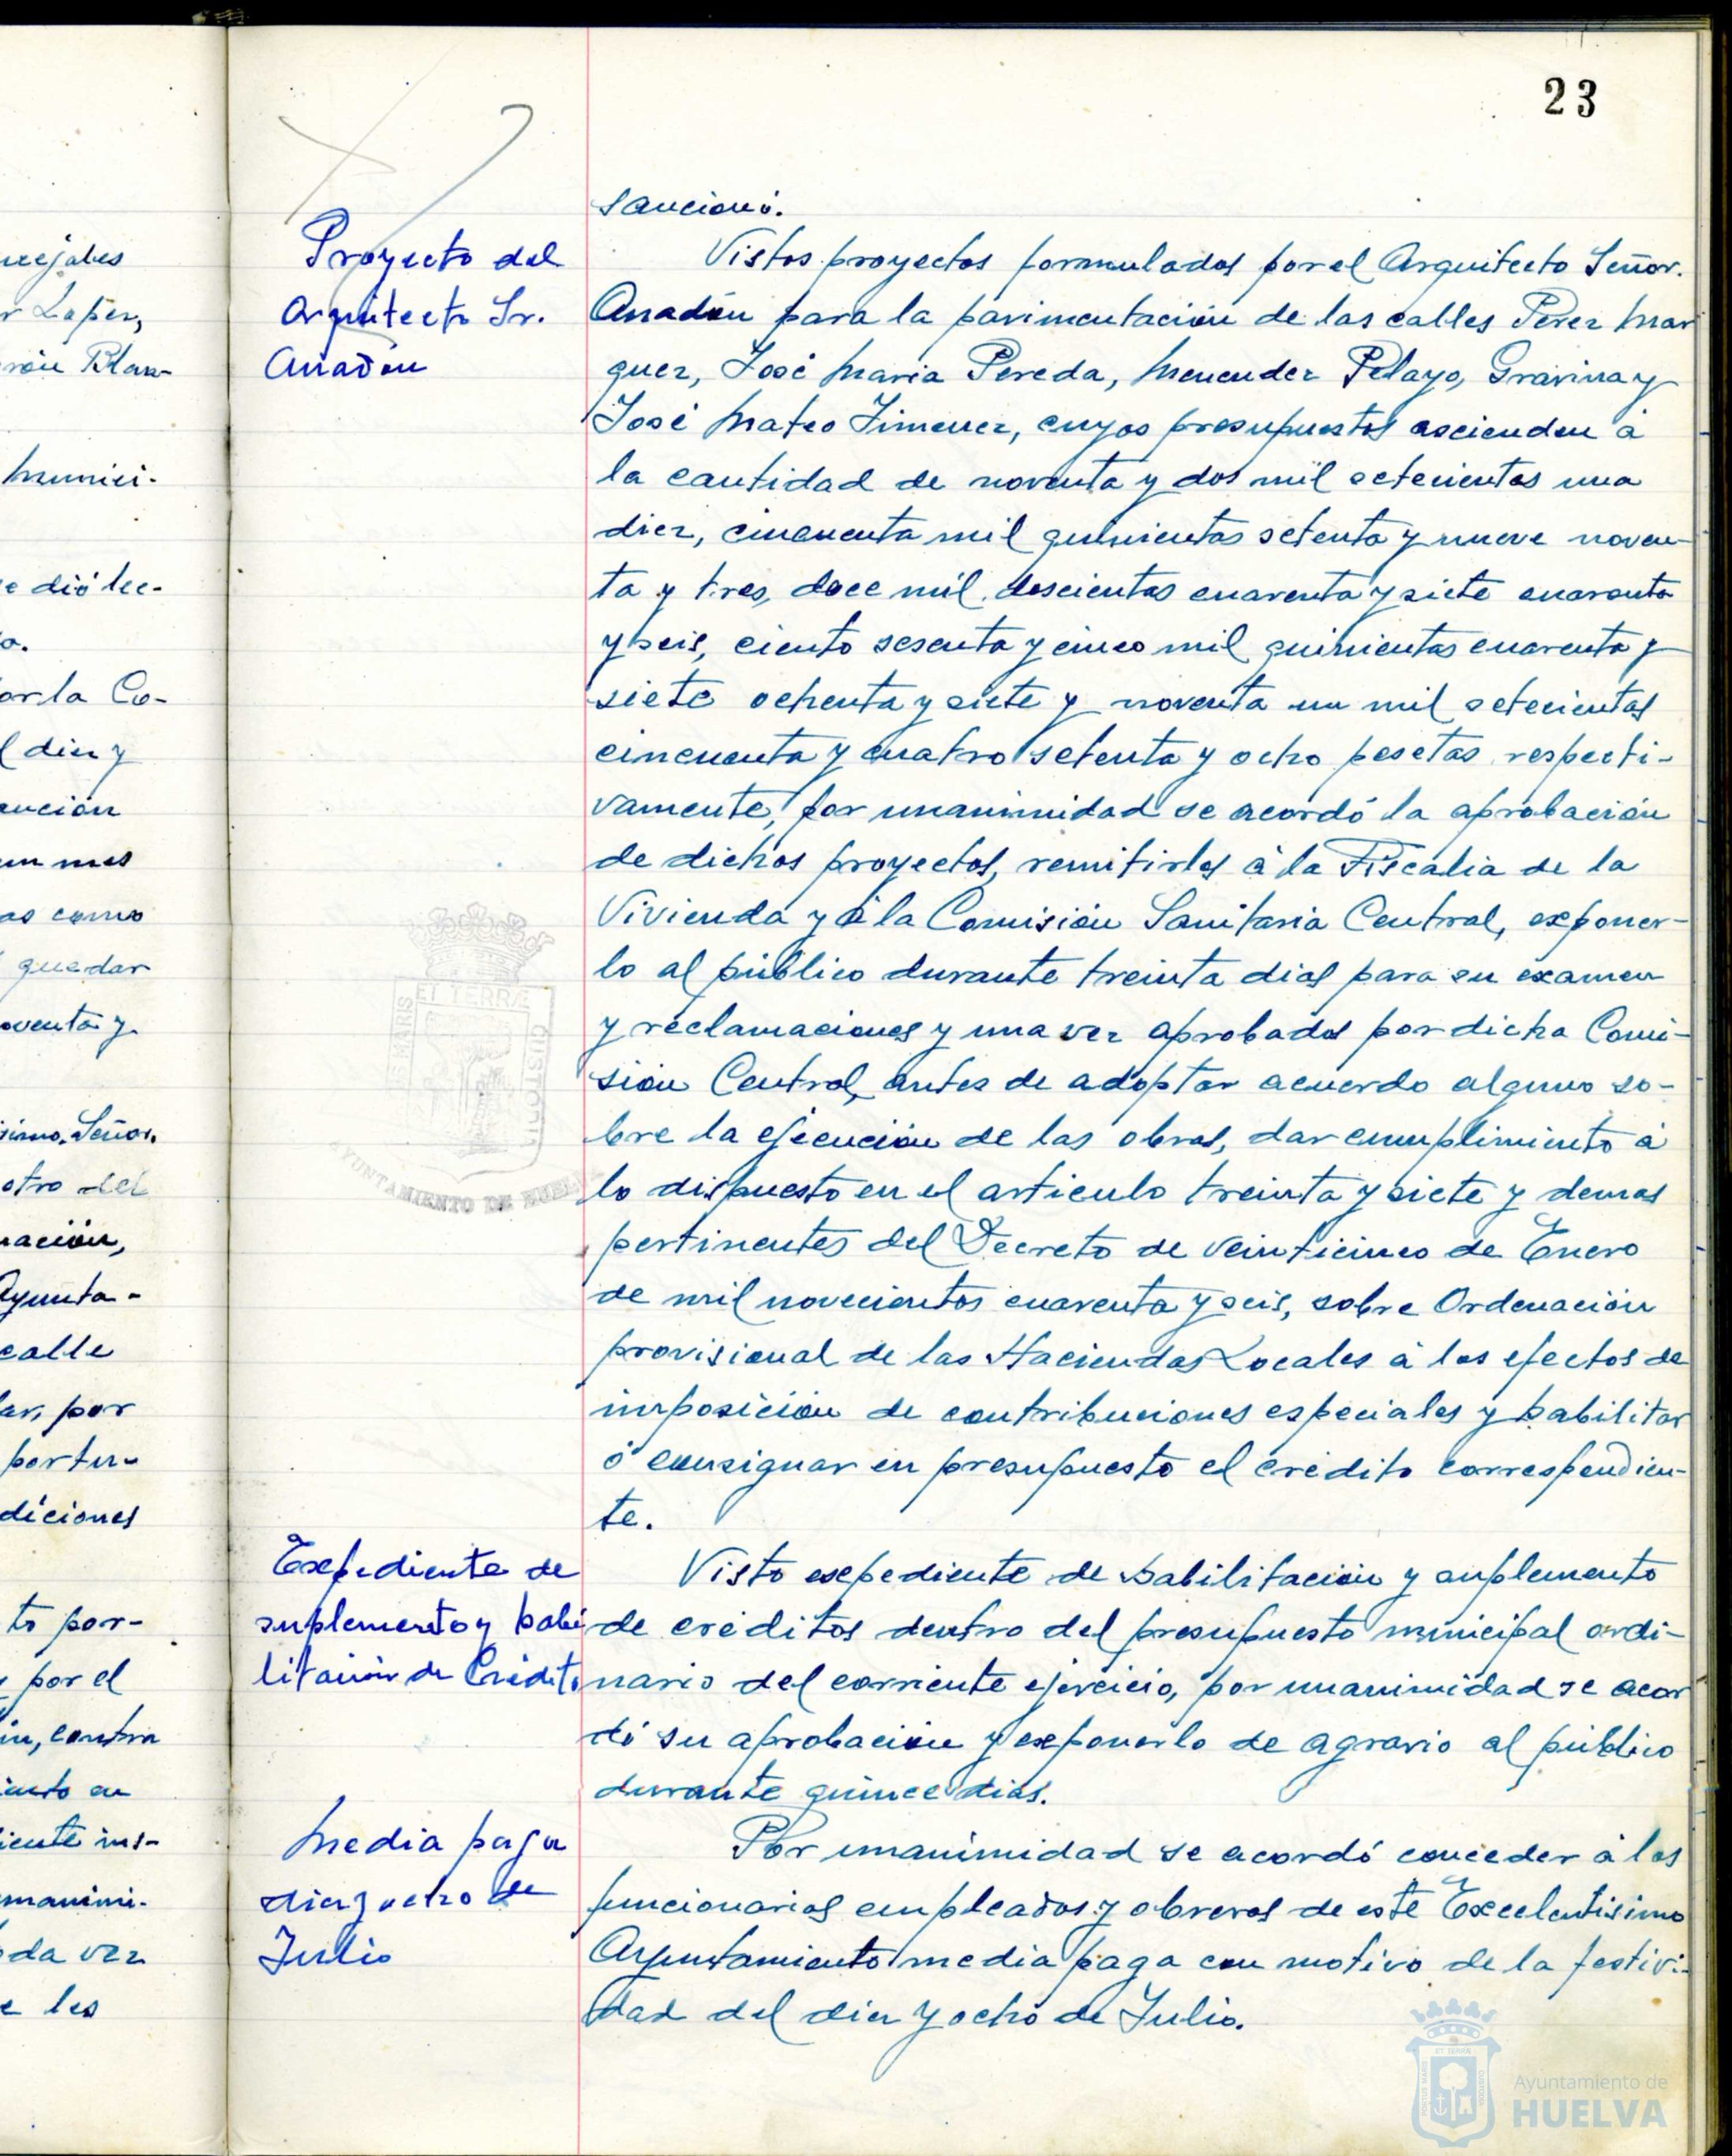 23
sancionó.
Proyecto del
Arquitecto Sr.
Anadón
Vistos proyectos formulados por el Arquitecto Señor.
Anadón para la pavimentación de las calles Pérez Mar
quez, José Maria Pereda, Menendez Pelayo, Gravina y
José Mateo Jimenez, cuyos presupuestos ascienden á
la cantidad de noventa y dos mil setecientas una
diez, cincuenta mil quinientas setenta y nueve noven-
ta y tres, doce mil doscientas cuarenta y siete cuarenta
y seis, ciento sesenta y cinco mil quinientas cuarenta y
siete ochenta y siete y noventa un mil setecientas
cincuenta y cuatro setenta y ocho pesetas respecti-
vamente, por unanimidad se acordó la aprobación
de dichos proyectos, remitirlos á la Fiscalia de la
Vivienda y á la Comisión Sanitaria Central, exponer-
lo al público durante treinta dias para su examen
y reclamaciones y una vez aprobados por dicha Comi-
sión Central, antes de adoptar acuerdo alguno so-
bre la ejecución de las obras, dar cumplimiento á
lo dispuesto en el articulo treinta y siete y demas
pertinentes del Decreto de veinticinco de Enero
de mil novecientos cuarenta y seis, sobre Ordenación
provisional de las Haciendas Locales á los efectos de
imposición de contribuciones especiales y habilitar
ó consignar en presupuesto el crédito correspondien-
te.
Expediente de
suplemento y habi
litación de Crédito
Visto expediente de habilitación y suplemento
de créditos dentro del presupuesto municipal ordi-
nario del corriente ejercicio, por unanimidad se acor
dó su aprobación y exponerlo de agravio al público
durante quince dias.
Media paga
diez y ocho de
Julio
Por unanimidad se acordó conceder á los
funcionarios empleados y obreros de este Excelentisimo
Ayuntamiento media paga con motivo de la festivi-
dad del diez y ocho de Julio.
ET TERRÆ
US MARIS
CUSTODIA
AYUNTAMIENTO DE HUEL
Ayuntamiento de
HUELVA